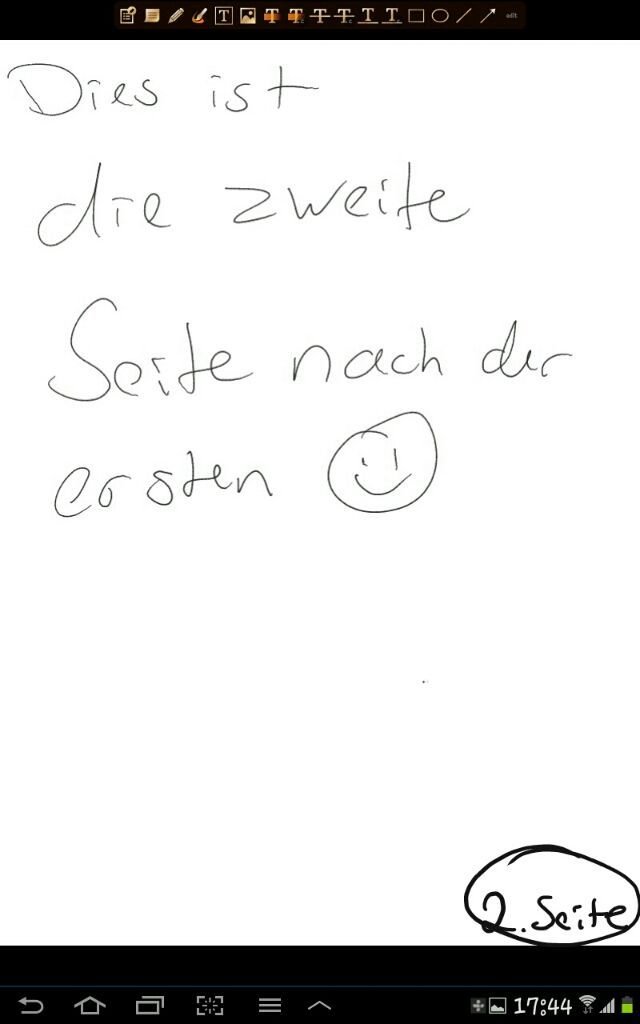 edit
Dies ist
die zweite
Seite nach der
ersten
2. Seite
17:44